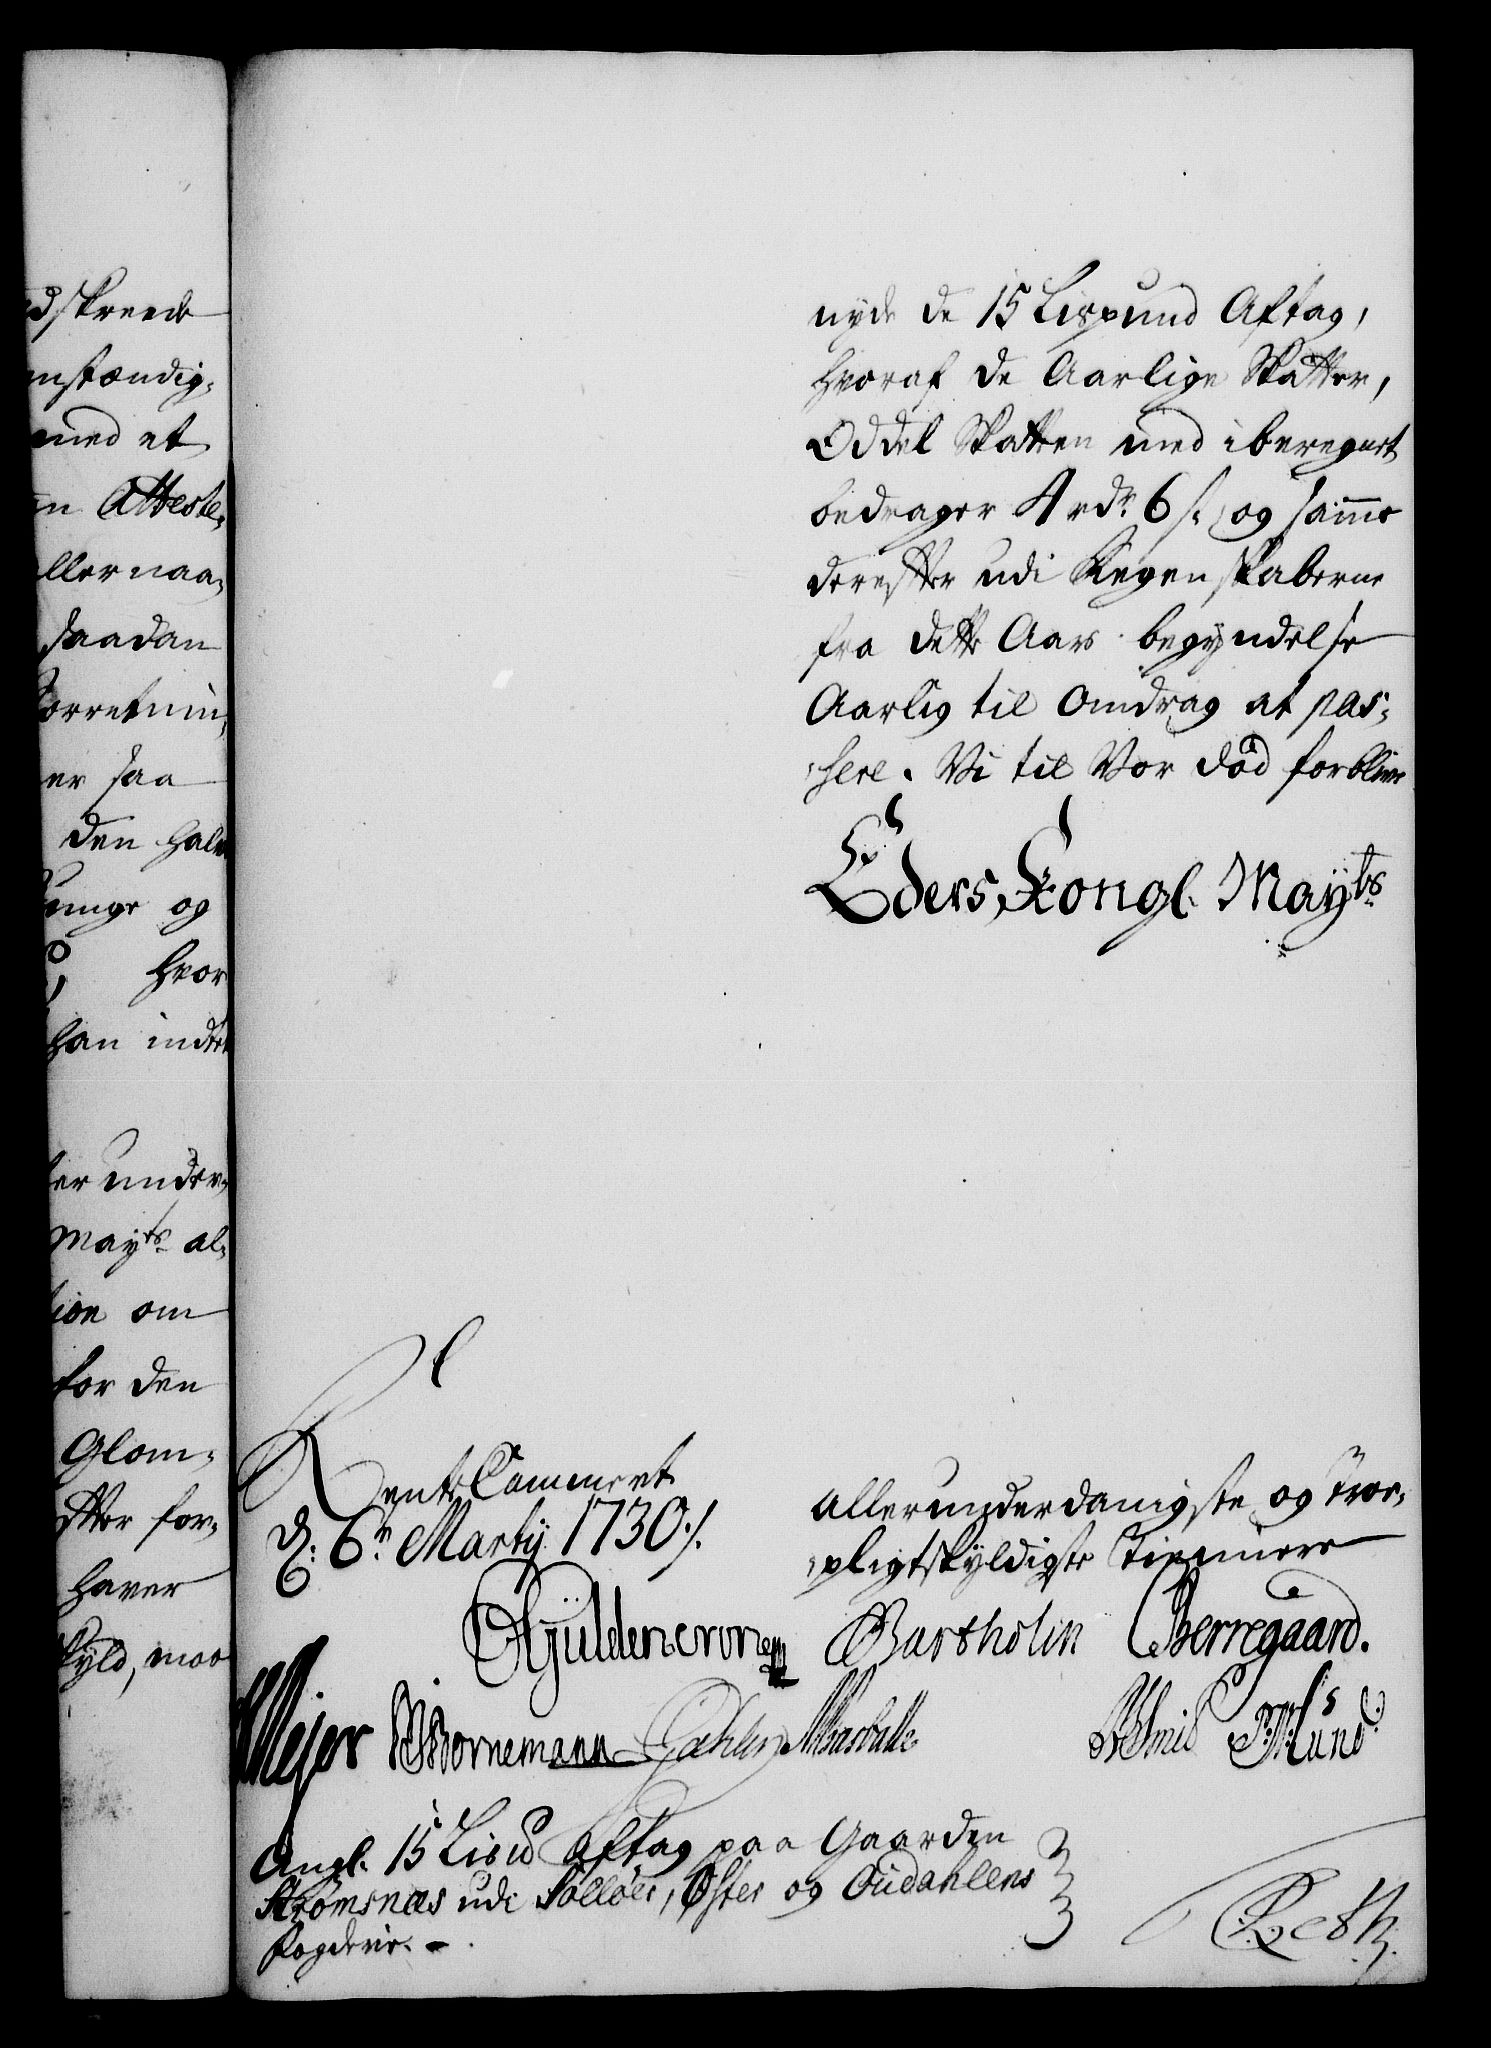 dskreede
mstændig-
med et
n Atteste-
llernaa-
saadan
orretnin-
er saa
den hal
unge og
hvor
han indtet
er under-
Mayts al-
ion om
for den
Glom-
for-
haver
skyld, maa
nyde de 15 Lispund Aftag,
hvoraf de Aarlige Skatter,
Oddel Skatten med iberegnet
bedrager 4 rdr 6 s. og samme
derefter udi Regenskaberne
fra dette Aars begyndelse
Aarlig til Omdrag at pas-
sere. Vi til Vor död forblive
Eders Kongl. Mayts
Rente Cammeret
d: 6te Martij 1730./.
allerunderdanigste og troe-
pligtskyldigste Tiennere
Gyldencrone Bartholin Berregaard.
Mejer Bornemann P: M: Lund
Angl. 15 Lisd Aftag paa Gaarden
Strömsnæs udi Solloer, Öster og Oudahlens
Fogderie.